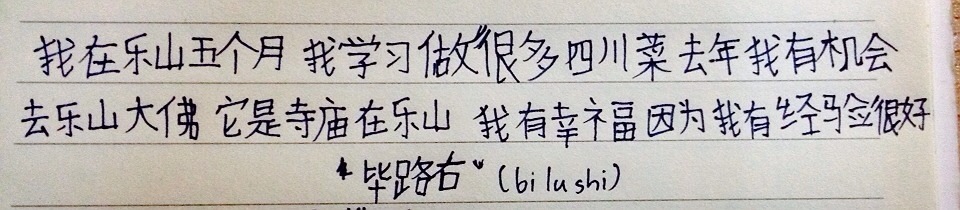 我在乐山五个月 我学习做"很多四川菜 去年我有机会
去乐山大佛 它是寺庙在乐山 我有幸福因为我有经验很好
"毕路右" (bilushi)